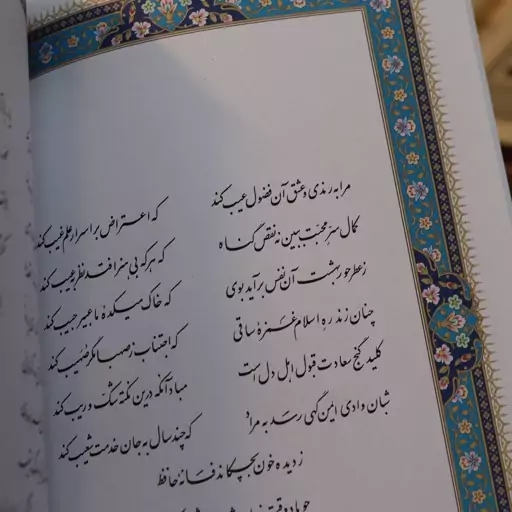 مرا به رندی و عشق آن فضول عیب کند
که اعتراض بر اسرار علم غیب کند
کمال سر محبت ببین نه نقص گناه
که هر که بی‌هنر افتد نظر به عیب کند
ز عطر حور بهشت آن نفس برآید بوی
که خاک میکده ما عبیر جیب کند
چنان زند ره اسلام غمزه ساقی
که اجتناب ز صهبا مگر صهیب کند
کلید گنج سعادت قبول اهل دل است
مباد آنکه درین نکته شک و ریب کند
شبان وادی ایمن گهی رسد به مراد
که چند سال به جان خدمت شعیب کند
ز دیده خون بچکاند فسانه حافظ